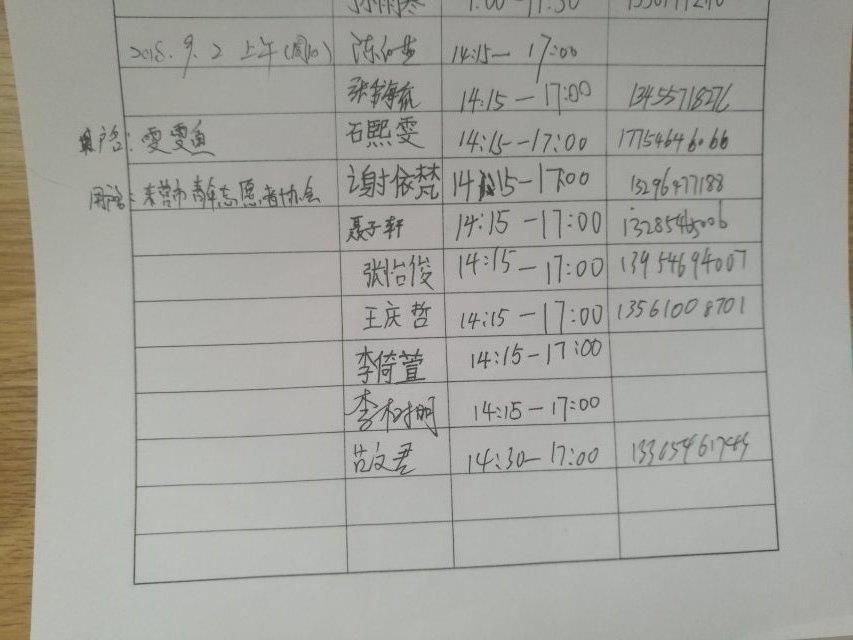 2018.9.2 上午(周日) 14:15— 17:00
14:15 — 17:00 13455718276
用户名: 雯雯鱼 石熙雯 14:15—17:00 17754646066
东营市青年志愿者协会 谢依梵 14:15—17:00 13296477188
聂子轩 14:15 —17:00
张怡俊 14:15—17:00 13954694007
王庆哲 14:15 —17:00 13561008701
李倚萱 14:15—17:00
李树明 14:15—17:00
14:30—17:00